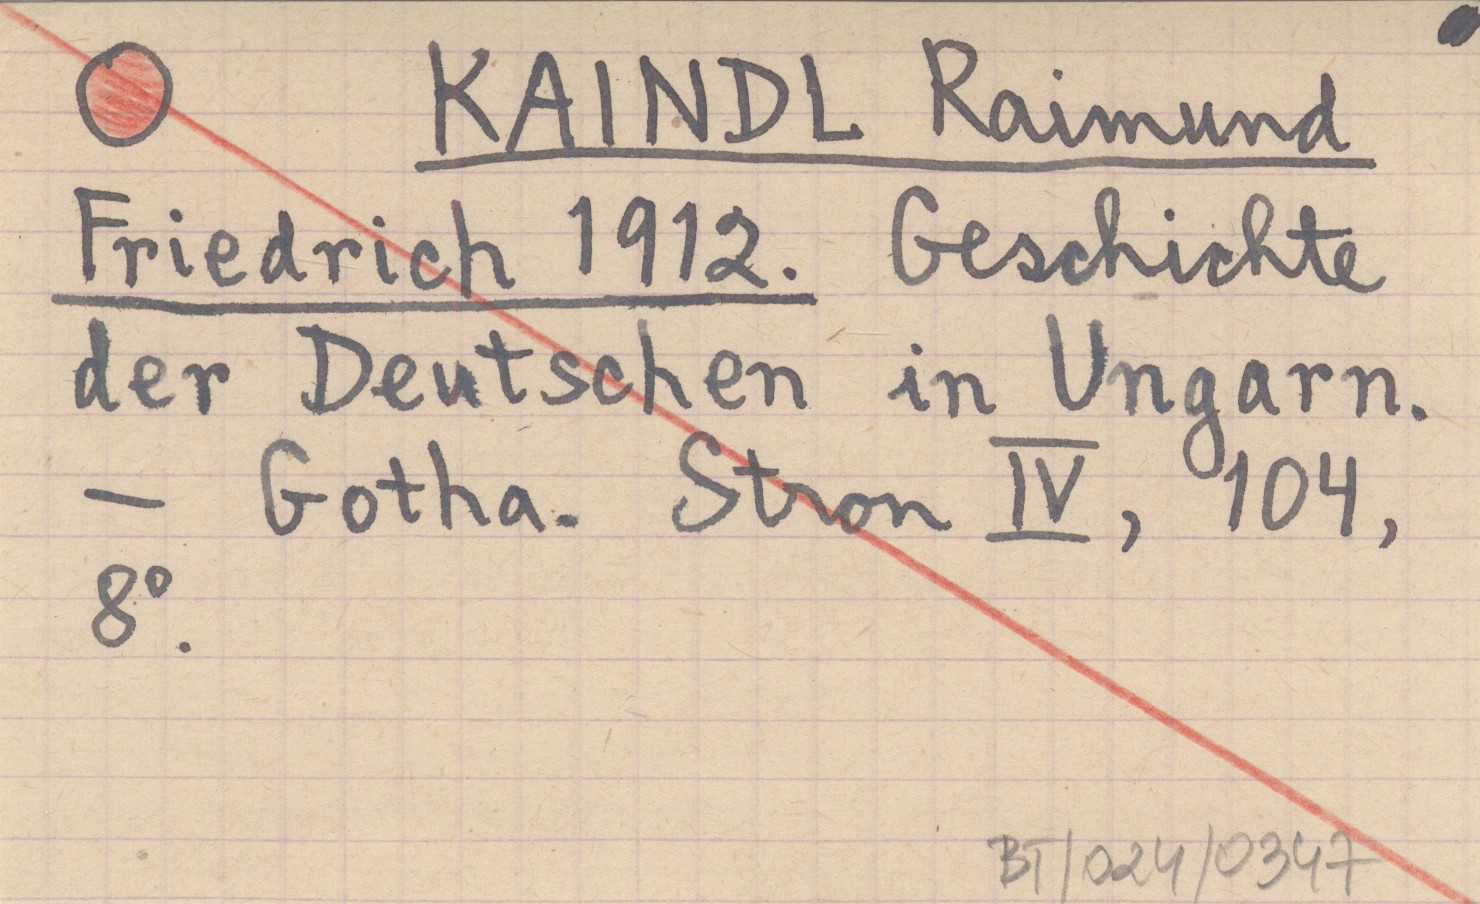 KAINDL Raimund
Friedrich 1912. Geschichte
der Deutschen in Ungarn.
— Gotha. Stron IV, 104,
8°.
BT/024/0347